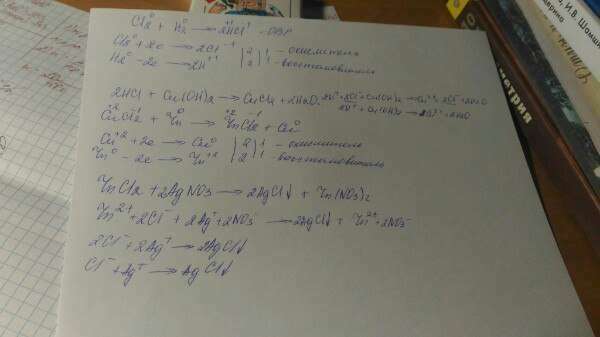 Cl₂⁰ + H₂⁰ → 2H⁺¹Cl⁻¹ - ОВР
Cl₂⁰ + 2e → 2Cl⁻¹ | 2 | 1 - окислитель
H₂⁰ - 2e → 2H⁺¹ | 2 | 1 - восстановитель
2HCl + Cu(OH)₂ → CuCl₂ + 2H₂O
2H⁺ + 2Cl⁻ + Cu(OH)₂ → Cu²⁺ + 2Cl⁻ + 2H₂O
2H⁺ + Cu(OH)₂ → Cu²⁺ + 2H₂O
Cu⁺²Cl₂⁻¹ + Zn⁰ → Zn⁺²Cl₂⁻¹ + Cu⁰
Cu⁺² + 2e → Cu⁰ | 2 | 1 - окислитель
Zn⁰ - 2e → Zn⁺² | 2 | 1 - восстановитель
ZnCl₂ + 2AgNO₃ → 2AgCl↓ + Zn(NO₃)₂
Zn²⁺ + 2Cl⁻ + 2Ag⁺ + 2NO₃⁻ → 2AgCl↓ + Zn²⁺ + 2NO₃⁻
2Cl⁻ + 2Ag⁺ → 2AgCl↓
Cl⁻ + Ag⁺ → AgCl↓
И.В. Шамши